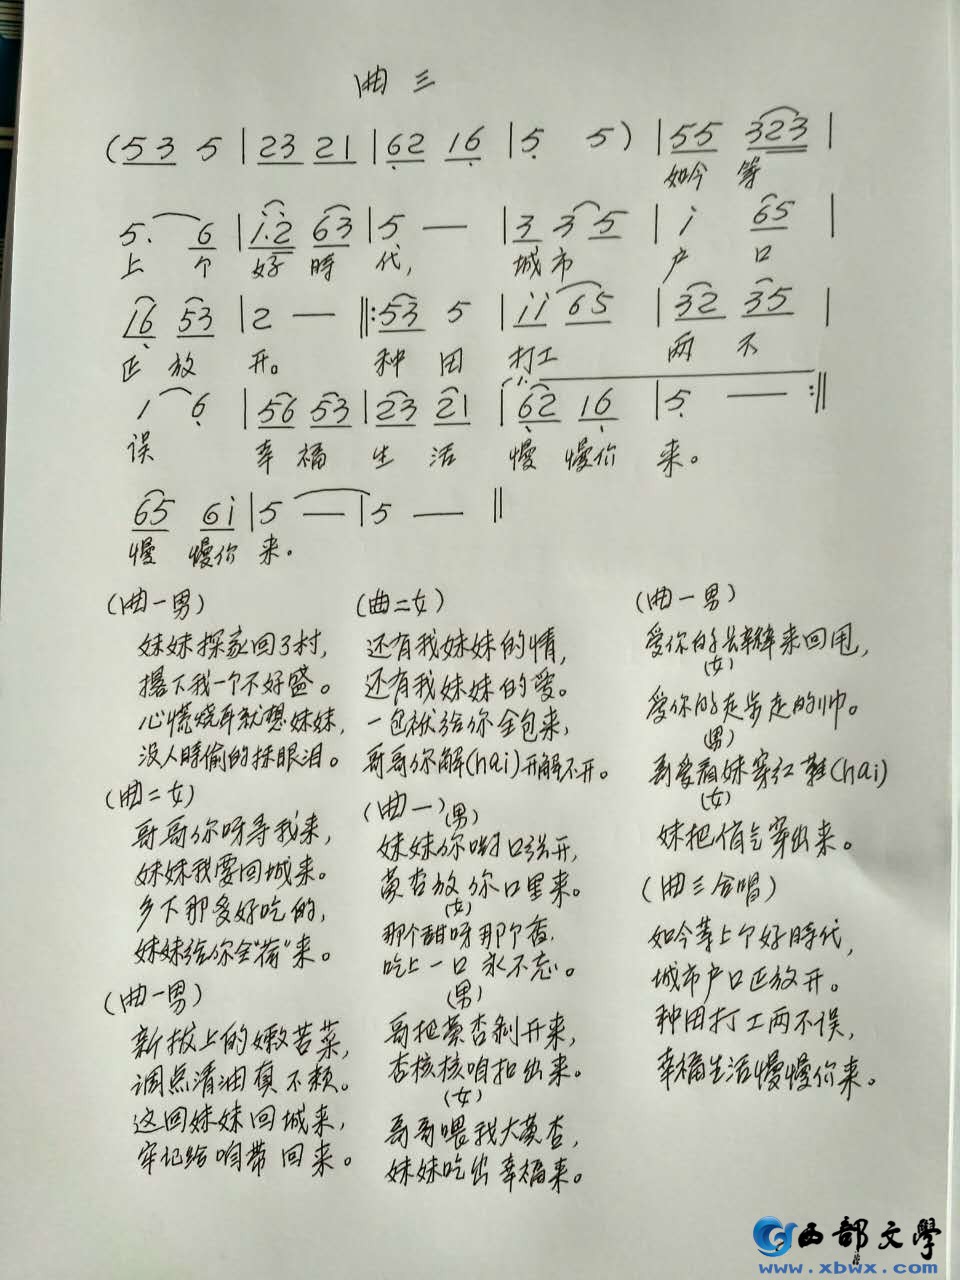 曲三
(53 5 | 23 21 | 62 16 | 5 5) | 55 323 |
如今等
5. 6 | i.2 63 | 5 — | 3 35 | i 65 |
上个好時代，城市户口
16 53 | 2 — ‖: 53 5 | ii 65 | 32 35 |
正放开。种田打工两不
1 6 | 56 53 | 23 21 | 62 16 | 5 — :‖
误 幸福生活慢慢你来。
65 6i | 5 — | 5 — ‖
慢慢你来。
(曲一男)
妹妹探家回了村，
撂下我一个不好盛。
心慌烧耳就想妹妹，
没人時偷的抹眼泪。
(曲二女)
哥哥你呀寻我来，
妹妹我要回城来。
乡下那多好吃的，
妹妹给你全“荷”来。
(曲一男)
新拔上的嫩苦菜，
调点清油真不赖。
这回妹妹回城来，
牢记给咱带回来。
(曲二女)
还有我妹妹的情，
还有我妹妹的爱。
一包袱给你全包来，
哥哥你解(hai)开解不开。
(曲一)(男)
妹妹你口张开，
黄杏放你口里来。
(女)
那个甜呀那个香，
吃上一口永不忘。
(男)
哥把黄杏剥开来，
杏核核咱扣出来。
(女)
哥哥喂我大黄杏，
妹妹吃出幸福来。
(曲一男)
爱你的长辫来回甩，
(女)
爱你的走步走的帅。
(男)
哥爱看妹穿红鞋(hai)
(女)
妹把俏气穿出来。
(曲三合唱)
如今等上个好時代，
城市户口正放开。
种田打工两不误，
幸福生活慢慢你来。
西部文學
www.xbwx.com